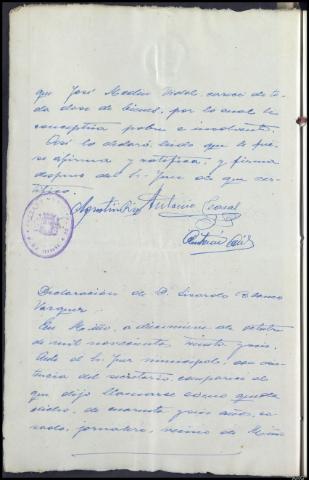 que José Medin Vidal, carece de to-
da clase de bienes, por lo cual le
conceptúa pobre e insolvente.
Así lo declaró, leido que le fue
se afirma y ratifica; y firma
despues del Sr. Juez de que cer-
tifico.
Agustin Antonio
Antonio
Declaración de D. Ricardo Blanco
Vazquez
En Miño, a diecinueve de octubre
de mil novecientos treinta y seis.
Ante el Sr. Juez municipal, con asis-
tencia del secretario, compareció el
que dijo llamarse como queda
dicho, de cuarenta y seis años, ca-
sado, jornalero, vecino de Miño